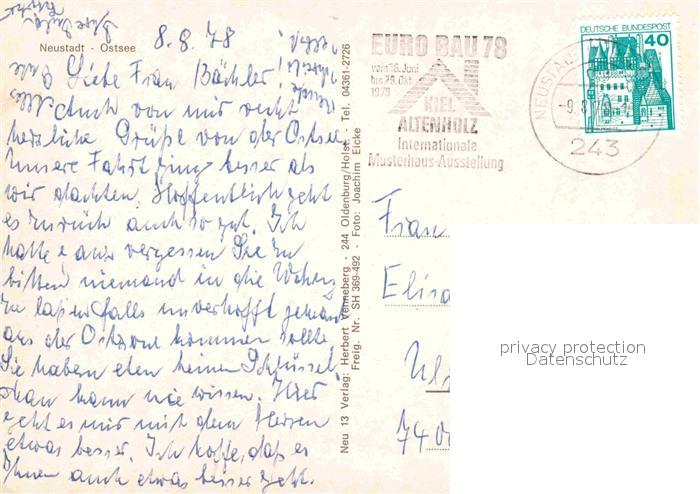 Neustadt - Ostsee
8.8.78
Liebe Frau Bächler!
Auch von mir recht
herzliche Grüße von der Ostsee
Unsere Fahrt ging besser als
wir dachten. Hoffentlich geht
es zurück auch so gut. Ich
hatte ganz vergessen Sie zu
bitten niemand in die Wohng
zu laßen falls unverhofft jemand
aus der Ostzone kommen sollte
Sie haben eben keinen Schlüssel
man kann nie wissen. Hier
geht es mir mit dem Herzen
etwas besser. Ich hoffe, daß es
Ihnen auch etwas besser geht.
Alles
Neu 13 Verlag: Herbert Venneberg - 244 Oldenburg/Holst. - Tel. 04361-2726
Freig. Nr. SH 369-492 - Foto: Joachim Eicke
EURO BAU 78
vom 16. Juni
bis 29. Okt.
1978
KIEL
ALTENHOLZ
Internationale
Musterhaus-Ausstellung
NEUSTADT
-9.8.78
243
DEUTSCHE BUNDESPOST
40
Frau
Elisa
Ulm
740
privacy protection
Datenschutz